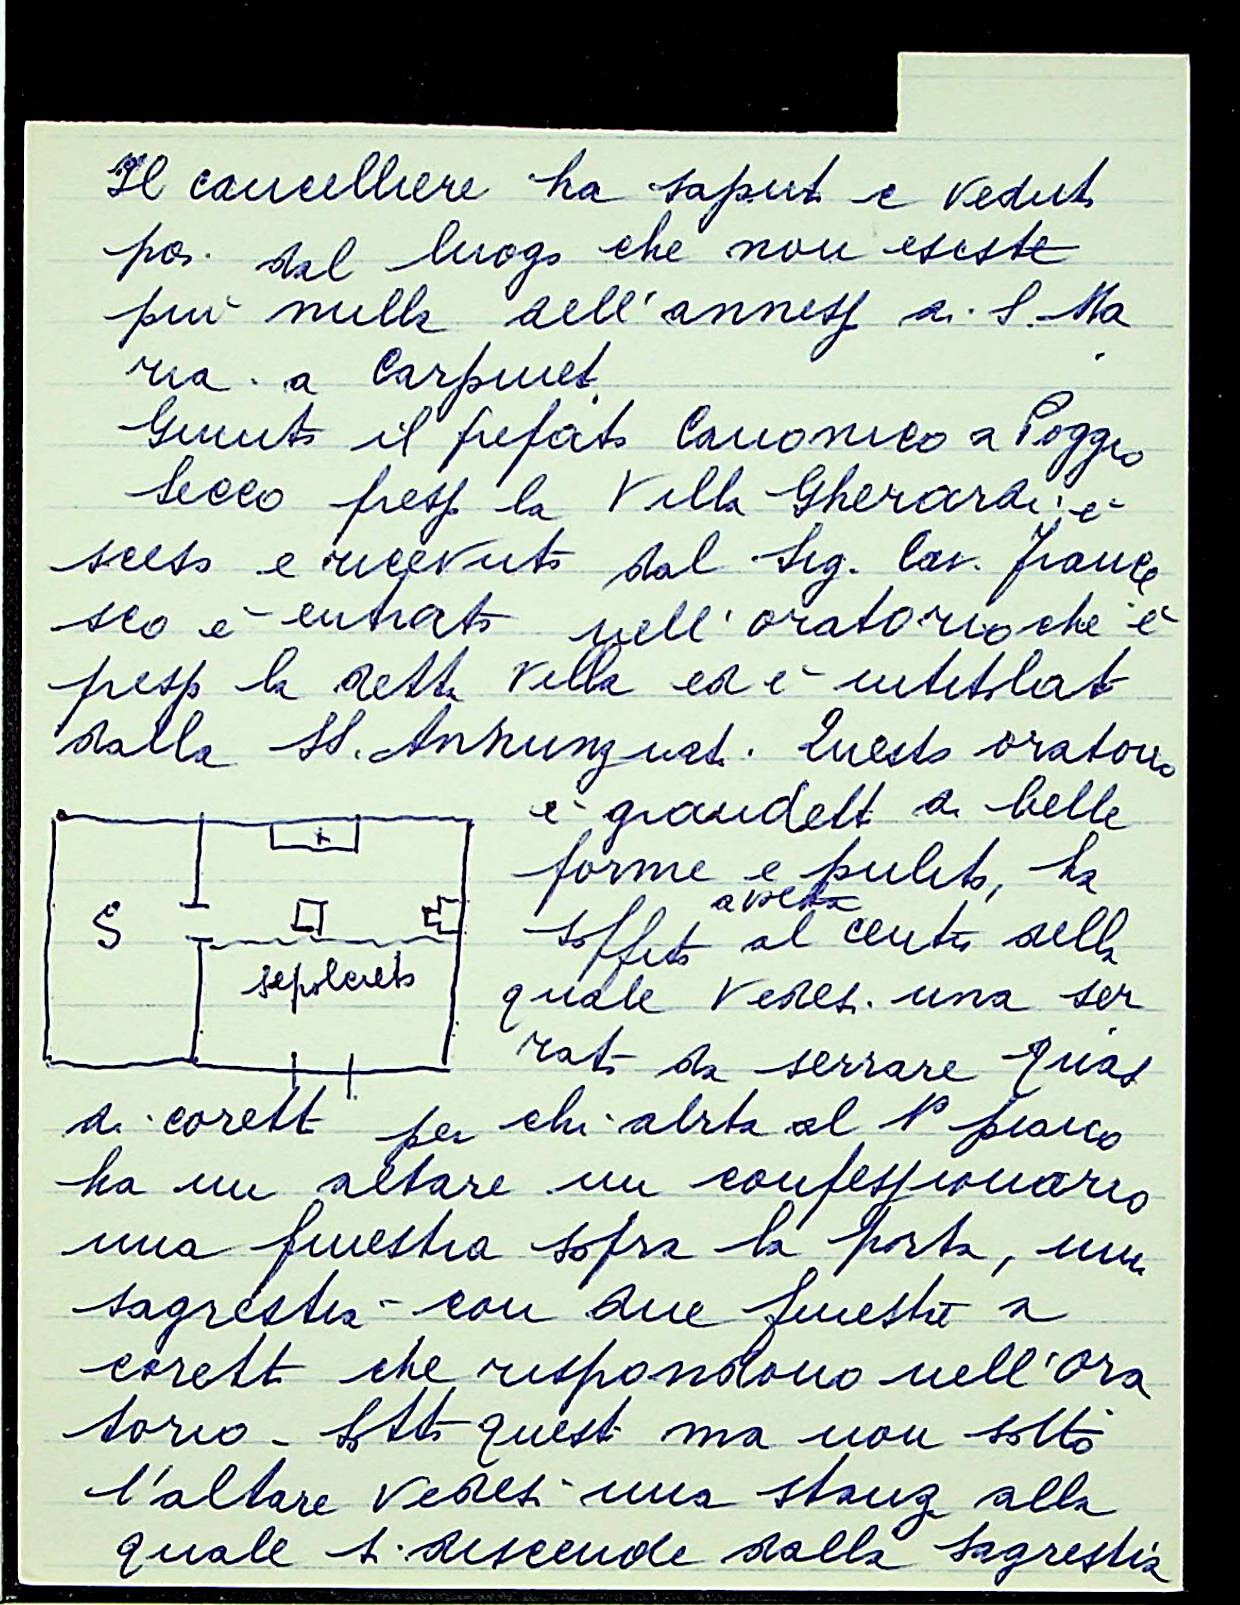 Il cancelliere ha saputo e veduto
poi dal luogo che non esiste
più nulla dell'annesso di S. Ma
ria a Carpineto
Giunto il prefato Canonico a Poggio
Secco presso la Villa Gherardi è
sceso e ricevuto dal Sig. Cav. France
sco è entrato nell'oratorio che è
presso la detta Villa ed è intitolato
dalla SS. Annunziata. Questo oratorio
è grandetto di belle
forme e pulito, ha
soffitto a volta al centro della
quale vedesi una ser
rata da serrare quasi
S
sepolcreto
di coretto per chi abita al 1° piano
ha un altare un confessionario
una finestra sopra la porta, una
sagrestia - con due finestre a
coretto che rispondono nell'ora
torio - Sotto questo ma non sotto
l'altare vedesi una stanza alla
quale si discende dalla sagrestia